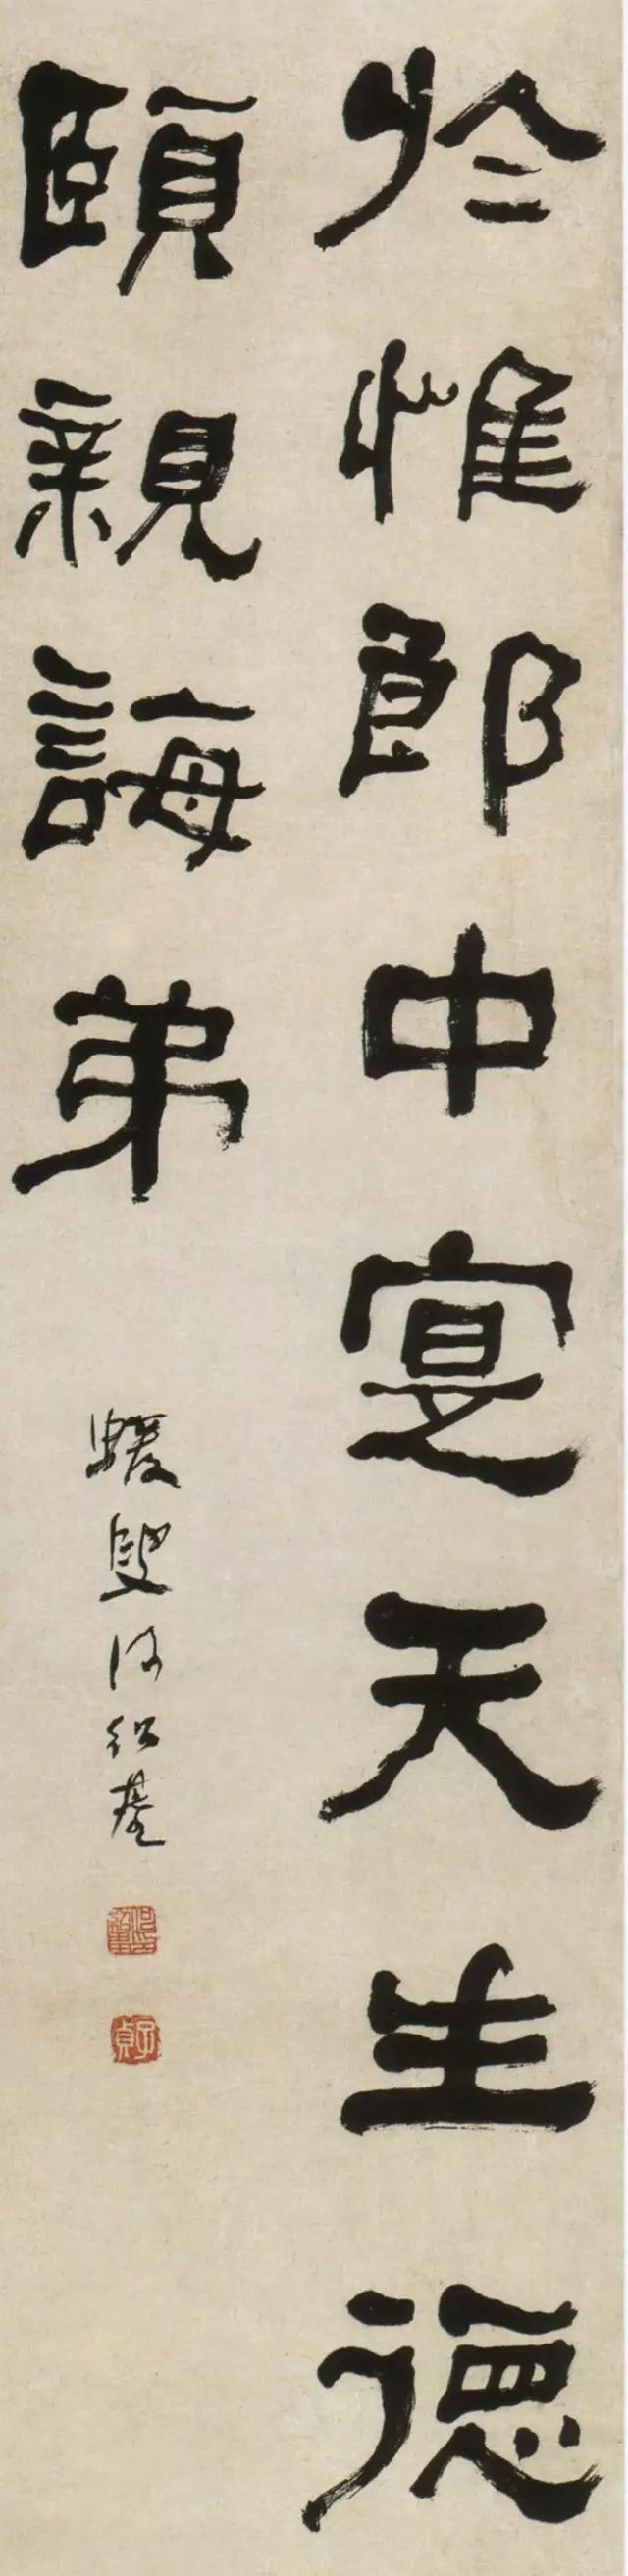 於惟郎中寔天生德
頤親誨弟
蝯叟何紹基
子貞